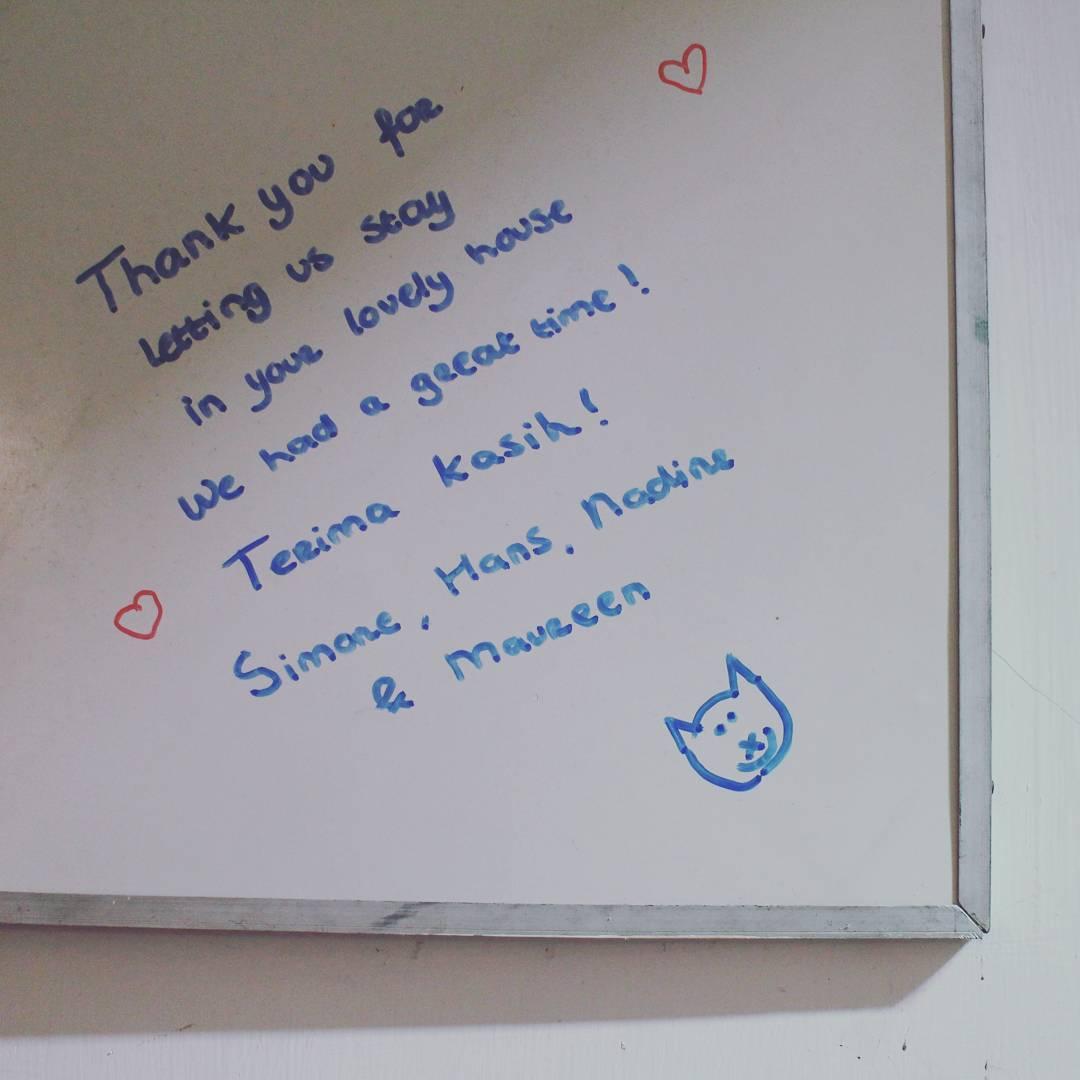 Thank you for
letting us stay
in your lovely house
We had a great time!
Terima kasih!
Simone, Hans, Nadine
& Maureen